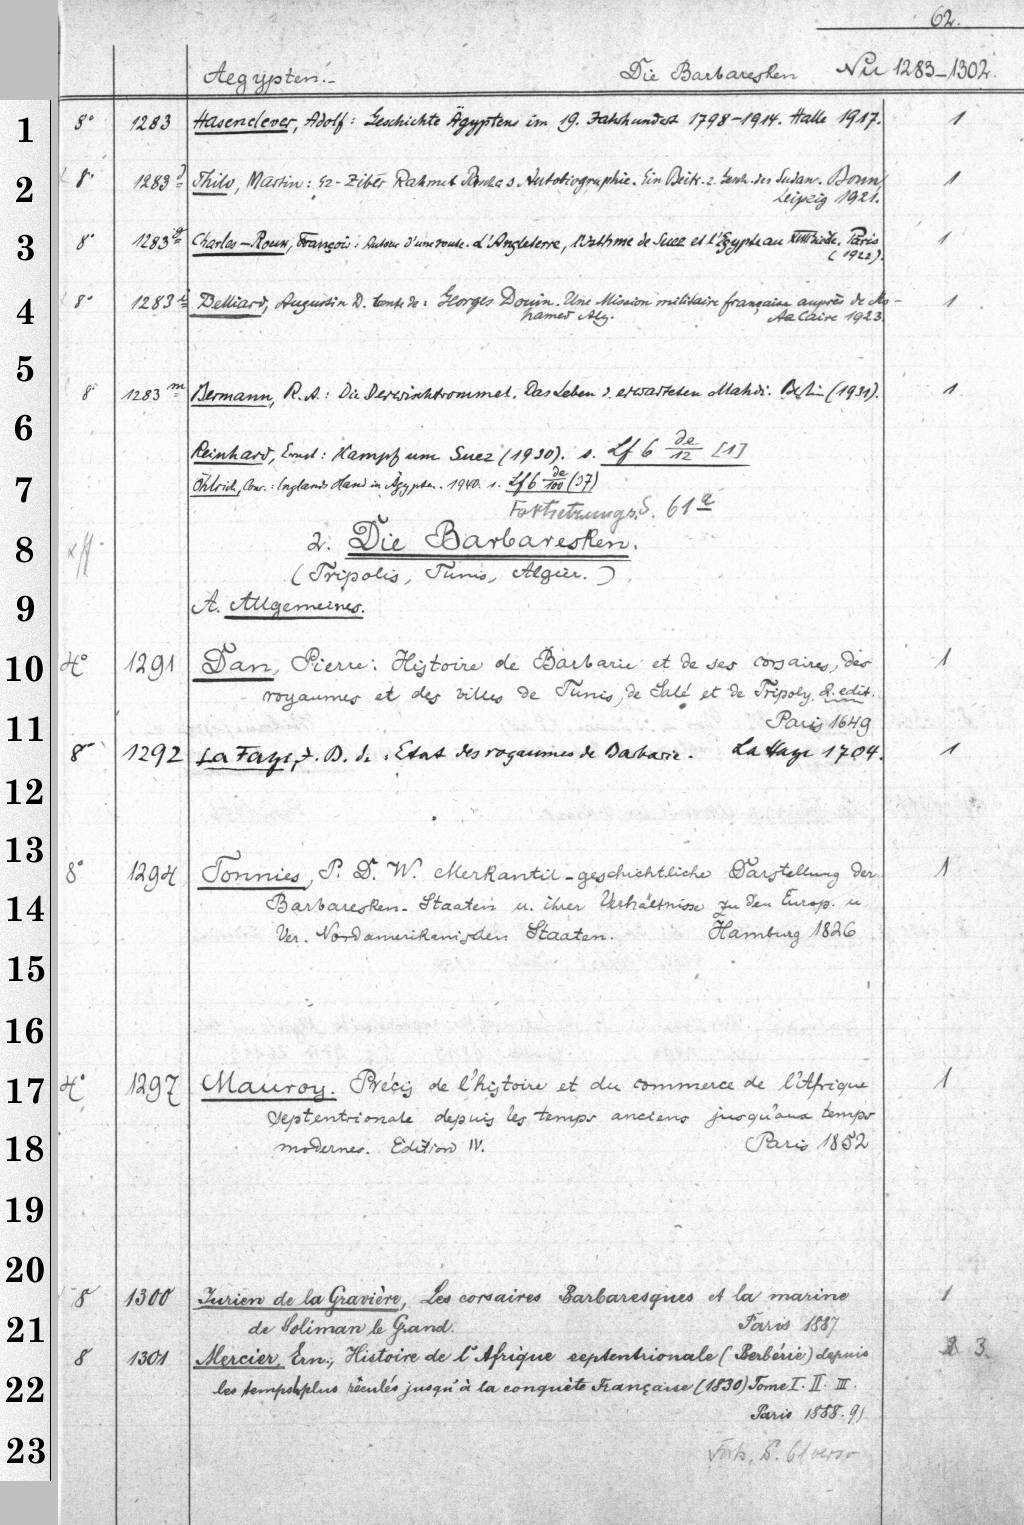 62.
Aegypten.- Die Barbaresken Nu 1283-1302.
1 8° 1283 Hasenclever, Adolf: Geschichte Ägyptens im 19. Jahrhundert 1798-1914. Halle 1917. 1
2 8° 1283 Thilo, Martin: Ez-Zibēr Rahmet Paschas Autobiographie. Ein Beitr. z. Gesch. des Sudan. Bonn, 1
Leipzig 1921.
3 8° 1283 g Charles-Roux, François: Autour d'une route. L'Angleterre, l'Isthme de Suez et l'Égypte au XVIII siècle. Paris 1
(1922).
4 8° 1283 i Belliard, Augustin D. comte de: Georges Douin. Une Mission militaire française auprès de Mo- 1
hamed Aly. Le Caire 1923.
5
8° 1283 m Bermann, R. A.: Die Derwischtrommel. Das Leben d. erwarteten Mahdi. Berlin (1931). 1
6
Reinhard, Ernst: Kampf um Suez (1930). s. Lf 6 de/12 [1]
7 Öhlrich, Conr.: Englands Hand in Ägypten. 1940. s. Lf 6 de/100 (37)
Fortsetzung s. S. 61 a
8 2. Die Barbaresken.
(Tripolis, Tunis, Algier.)
9 A. Allgemeines.
10 4° 1291 Dan, Pierre: Histoire de Barbarie et de ses corsaires, des 1
royaumes et des villes de Tunis, de Salé et de Tripoly. 2. edit.
11 Paris 1649
8° 1292 La Faye, J. B. de: Etat des royaumes de Barbarie. La Haye 1704. 1
12
13
8° 1294 Tonnies, P. D. W. Merkantil-geschichtliche Darstellung der 1
14 Barbaresken-Staaten u. ihrer Verhältnisse zu den Europ. u.
Ver. Nordamerikanischen Staaten. Hamburg 1826
15
16
17 4° 1297 Mauroy. Précis de l'histoire et du commerce de l'Afrique 1
septentrionale depuis les temps anciens jusqu'aux temps
18 modernes. Edition IV. Paris 1852
19
20
8 1300 Jurien de la Gravière, Les corsaires Barbaresques et la marine 1
21 de Soliman le Grand. Paris 1887
8 1301 Mercier, Ern., Histoire de l'Afrique septentrionale (Berbérie) depuis 3.
22 les temps plus réculés jusqu'à la conquête Française (1830) Tome I. II. III.
Paris 1888-91
23 Forts. S. 61 verso